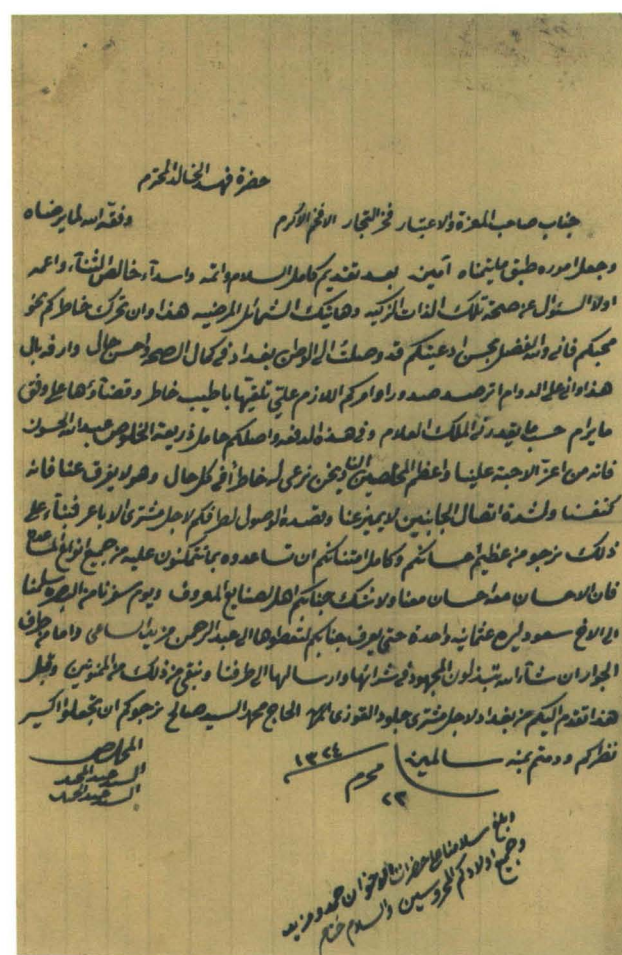 حضرة فهد الخالد المحترم
جناب صاحب المعزة والاعتبار فخر التجار الافخم الاكرم وفقه الله لما يرضاه
وجعل اموره طبق ما يتمناه آمين. بعد تقديم كامل السلام واتمه واسداء خالص الثناء واعمه
اولا السؤال عن صحة تلك الذات الزكيه وهاتيك الشمائل المرضيه هذا وان تحرك خاطركم نحو
محبكم فاني ولله الفضل بحسن ادعيتكم قد وصلت الى الوطن بغداد في كمال الصحه واحسن حال وارفه بال
هذا واني على الدوام اترصد صدور اوامركم اللازم علي تلقيها باطيب خاطر وقضاؤها على وفق
ما يرام حسب ما يقدرني الملك العلام وفي هذه الدفعه واصلكم حامل ذريعة الخلوص عبدالله الحسون
فانه من اعز الاحبة علينا واعظم المخلصين الينا ونحن نرعى له خاطراً في كل حال وهو لا يفرق عنا فانه
كنفسنا ولشدة اتصال الجانبين لا يميز عنا وقصده الوصول لطرفكم لاجل مشترى الاباعر فبناء على
ذلك نرجو من عظيم احسانكم وكامل امتنانكم ان تساعدوه بما تتمكنون عليه من جميع انواع المساعده
فان الاحسان معه احسان معنا ولا شك جنابكم اهل لصنايع المعروف ويوم سفرنا من البصره سلمنا
الى الاخ سعود ليره عثمانيه واحدة حتى يعرف جنابكم لتعطوها الى عبدالرحمن مزيد السامي واما من طرف
الجوار ان شاء الله تبذلون المجهود في شرائها وارسالها الى طرفنا ونبقى من ذلك من الممنونين وقبل
هذا تقدم اليكم من بغداد لاجل مشترى جلود القوزي الحاج محمد السيد صالح نرجوكم ان تجعلوا اكسير
نظركم ودمتم بمنه سالمين
٢٣ محرم ١٣٢٤
المخلص
السيد عبدالمجيد
السيد عبدالمجيد
وبلغ سلامنا على حضرات الاخوان حمد ومزيد
وجميع اولادكم المحروسين والسلام ختام